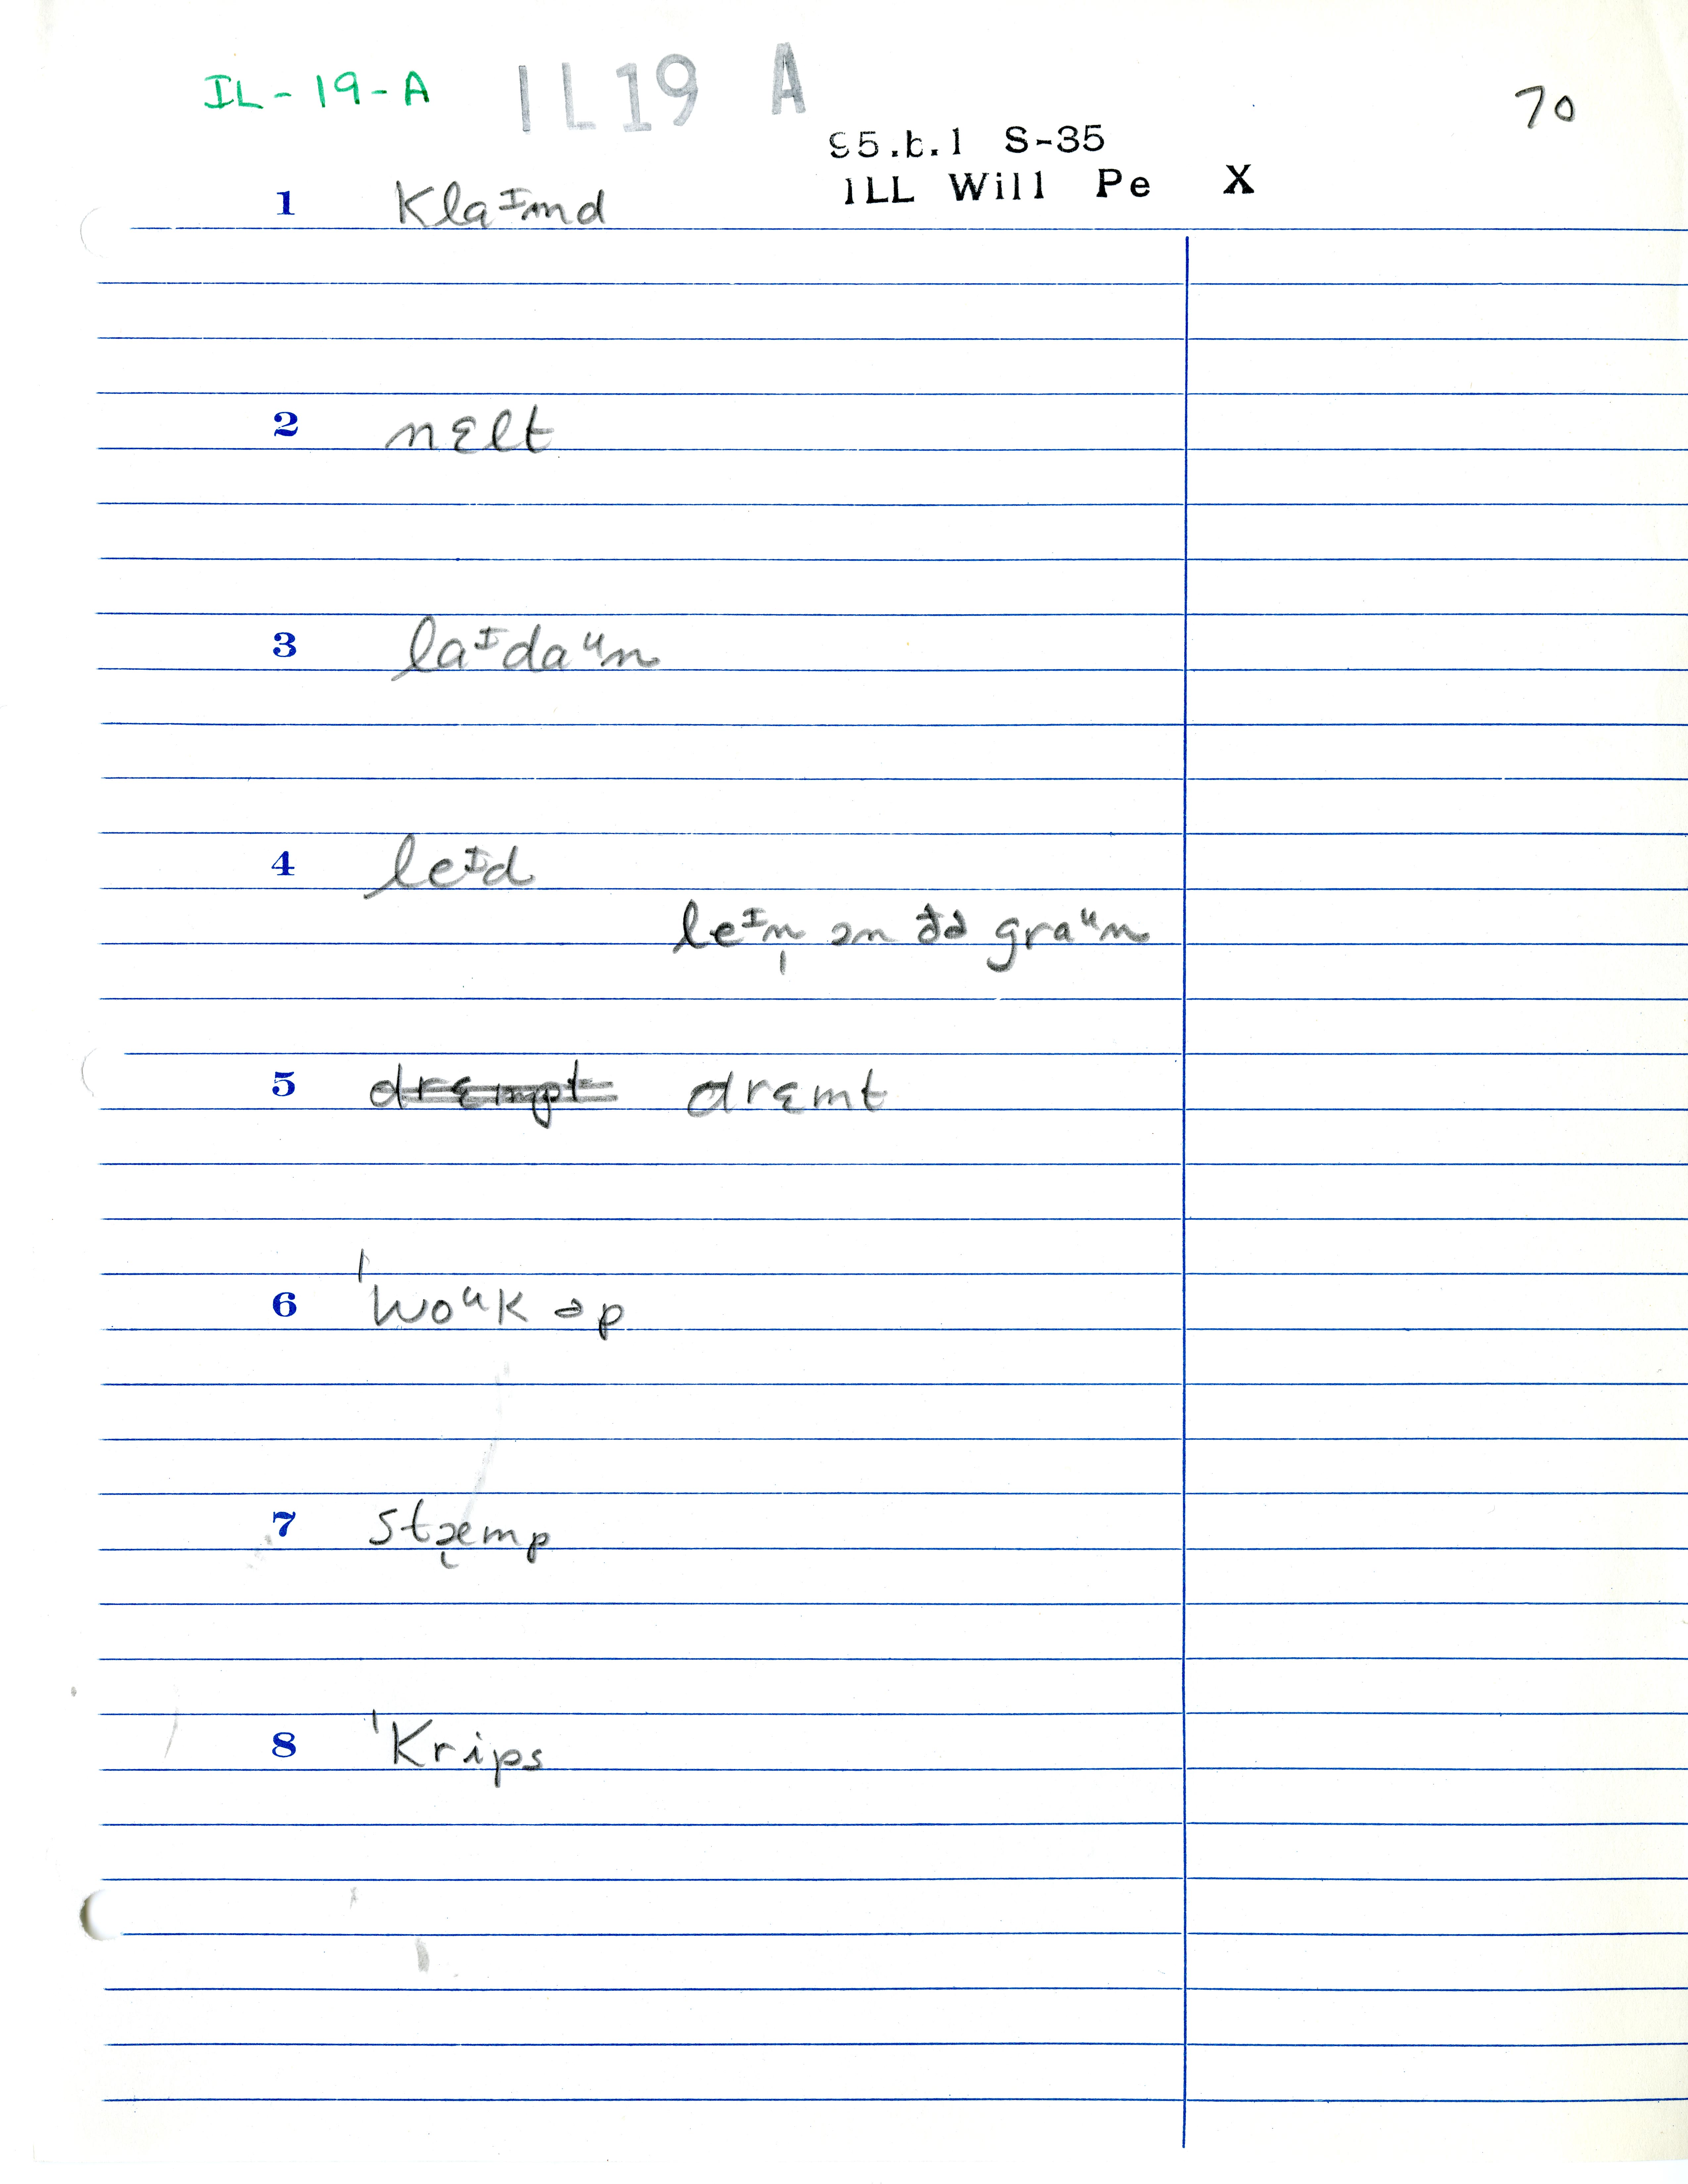 IL-19-A IL19 A 70
95.b.1 S-35
ILL Will Pe X
1 klaᴵmd
2 nɛlt
3 laᴵdaᵘn
4 leᴵd
leᴵn̩ ɔn ðə graᵘn
5 ~~drɛmpt~~ drɛmt
6 ˈwoᵘk əp
7 stæ̨mp
8 ˈkrips